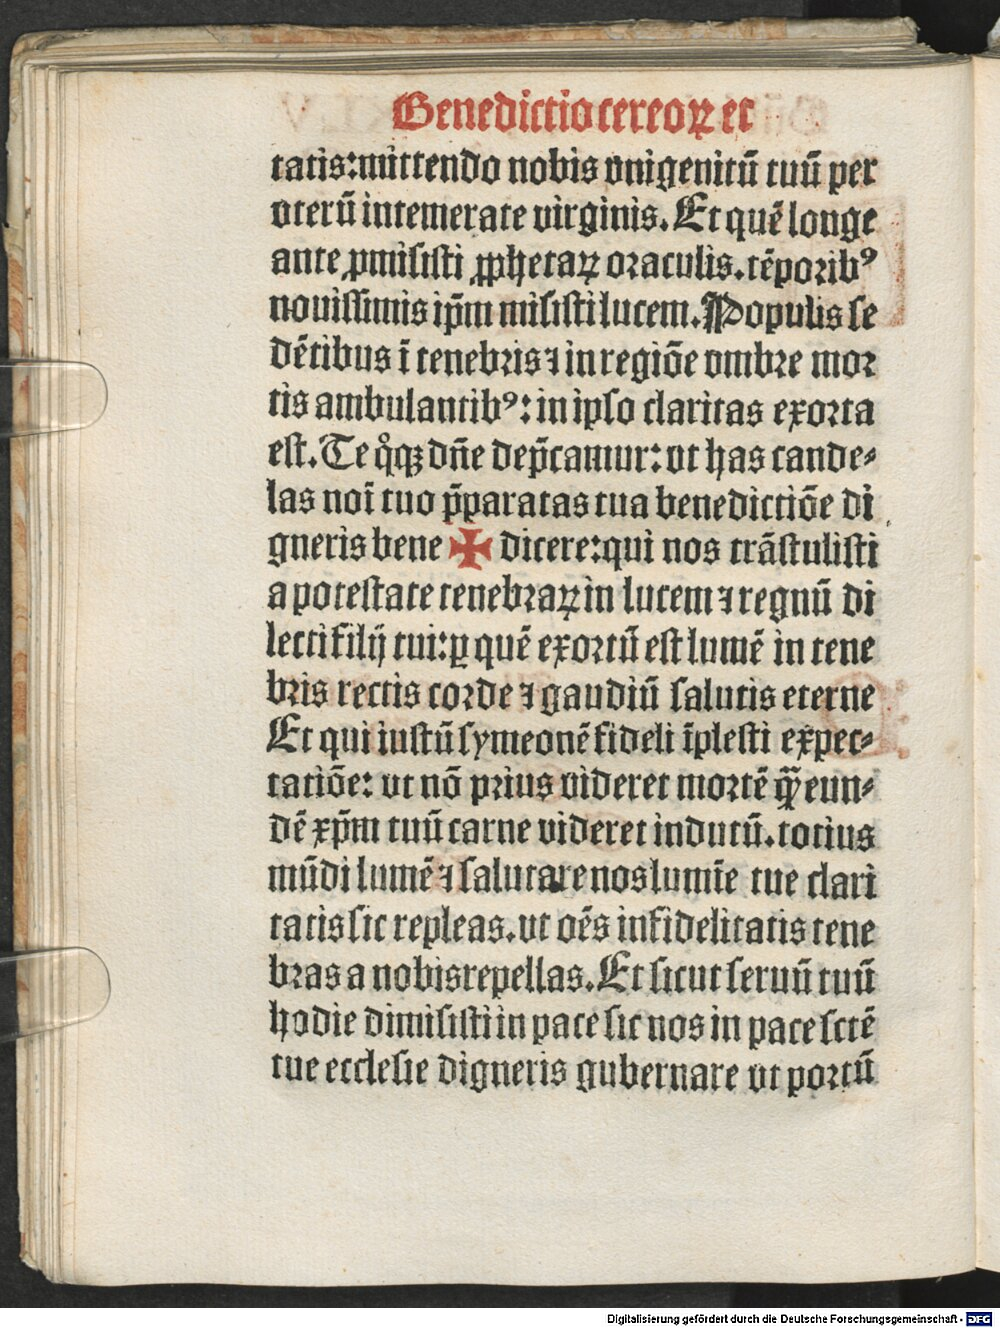 Benedictio cereoꝝ et
tatis: mittendo nobis vnigenitū tuū per
vterū intemerate virginis. Et quē longe
ante ꝓmisisti ꝓphetaꝝ oraculis. tēporibꝰ
nouissimis ip̄m misisti lucem. Populis se
dētibus ī tenebris ⁊ in regiōe vmbre mor
tis ambulantibꝰ: in ipso claritas exorta
est. Te qͦqꝫ dn̄e dep̄camur: vt has cande⸗
las noī tuo p̄paratas tua benedictiōe di
gneris bene ✠ dicere: qui nos trāstulisti
a potestate tenebraꝝ in lucem ⁊ regnū di
lecti filij tui: ꝑ quē exortū est lumē in tene
bris rectis corde ⁊ gaudiū salutis eterne
Et qui iustū symeonē fideli īplesti expec⸗
tatiōe: vt nō prius videret mortē qᷓꝫ eun⸗
dē xp̄m tuū carne videret indutū. totius
mūdi lumē ⁊ salutare nos lumīe tue clari
tatis sic repleas. vt oēs infidelitatis tene
bras a nobis repellas. Et sicut seruū tuū
hodie dimisisti in pace sic nos in pace sctē
tue ecclesie digneris gubernare vt portū
Digitalisierung gefördert durch die Deutsche Forschungsgemeinschaft - DFG